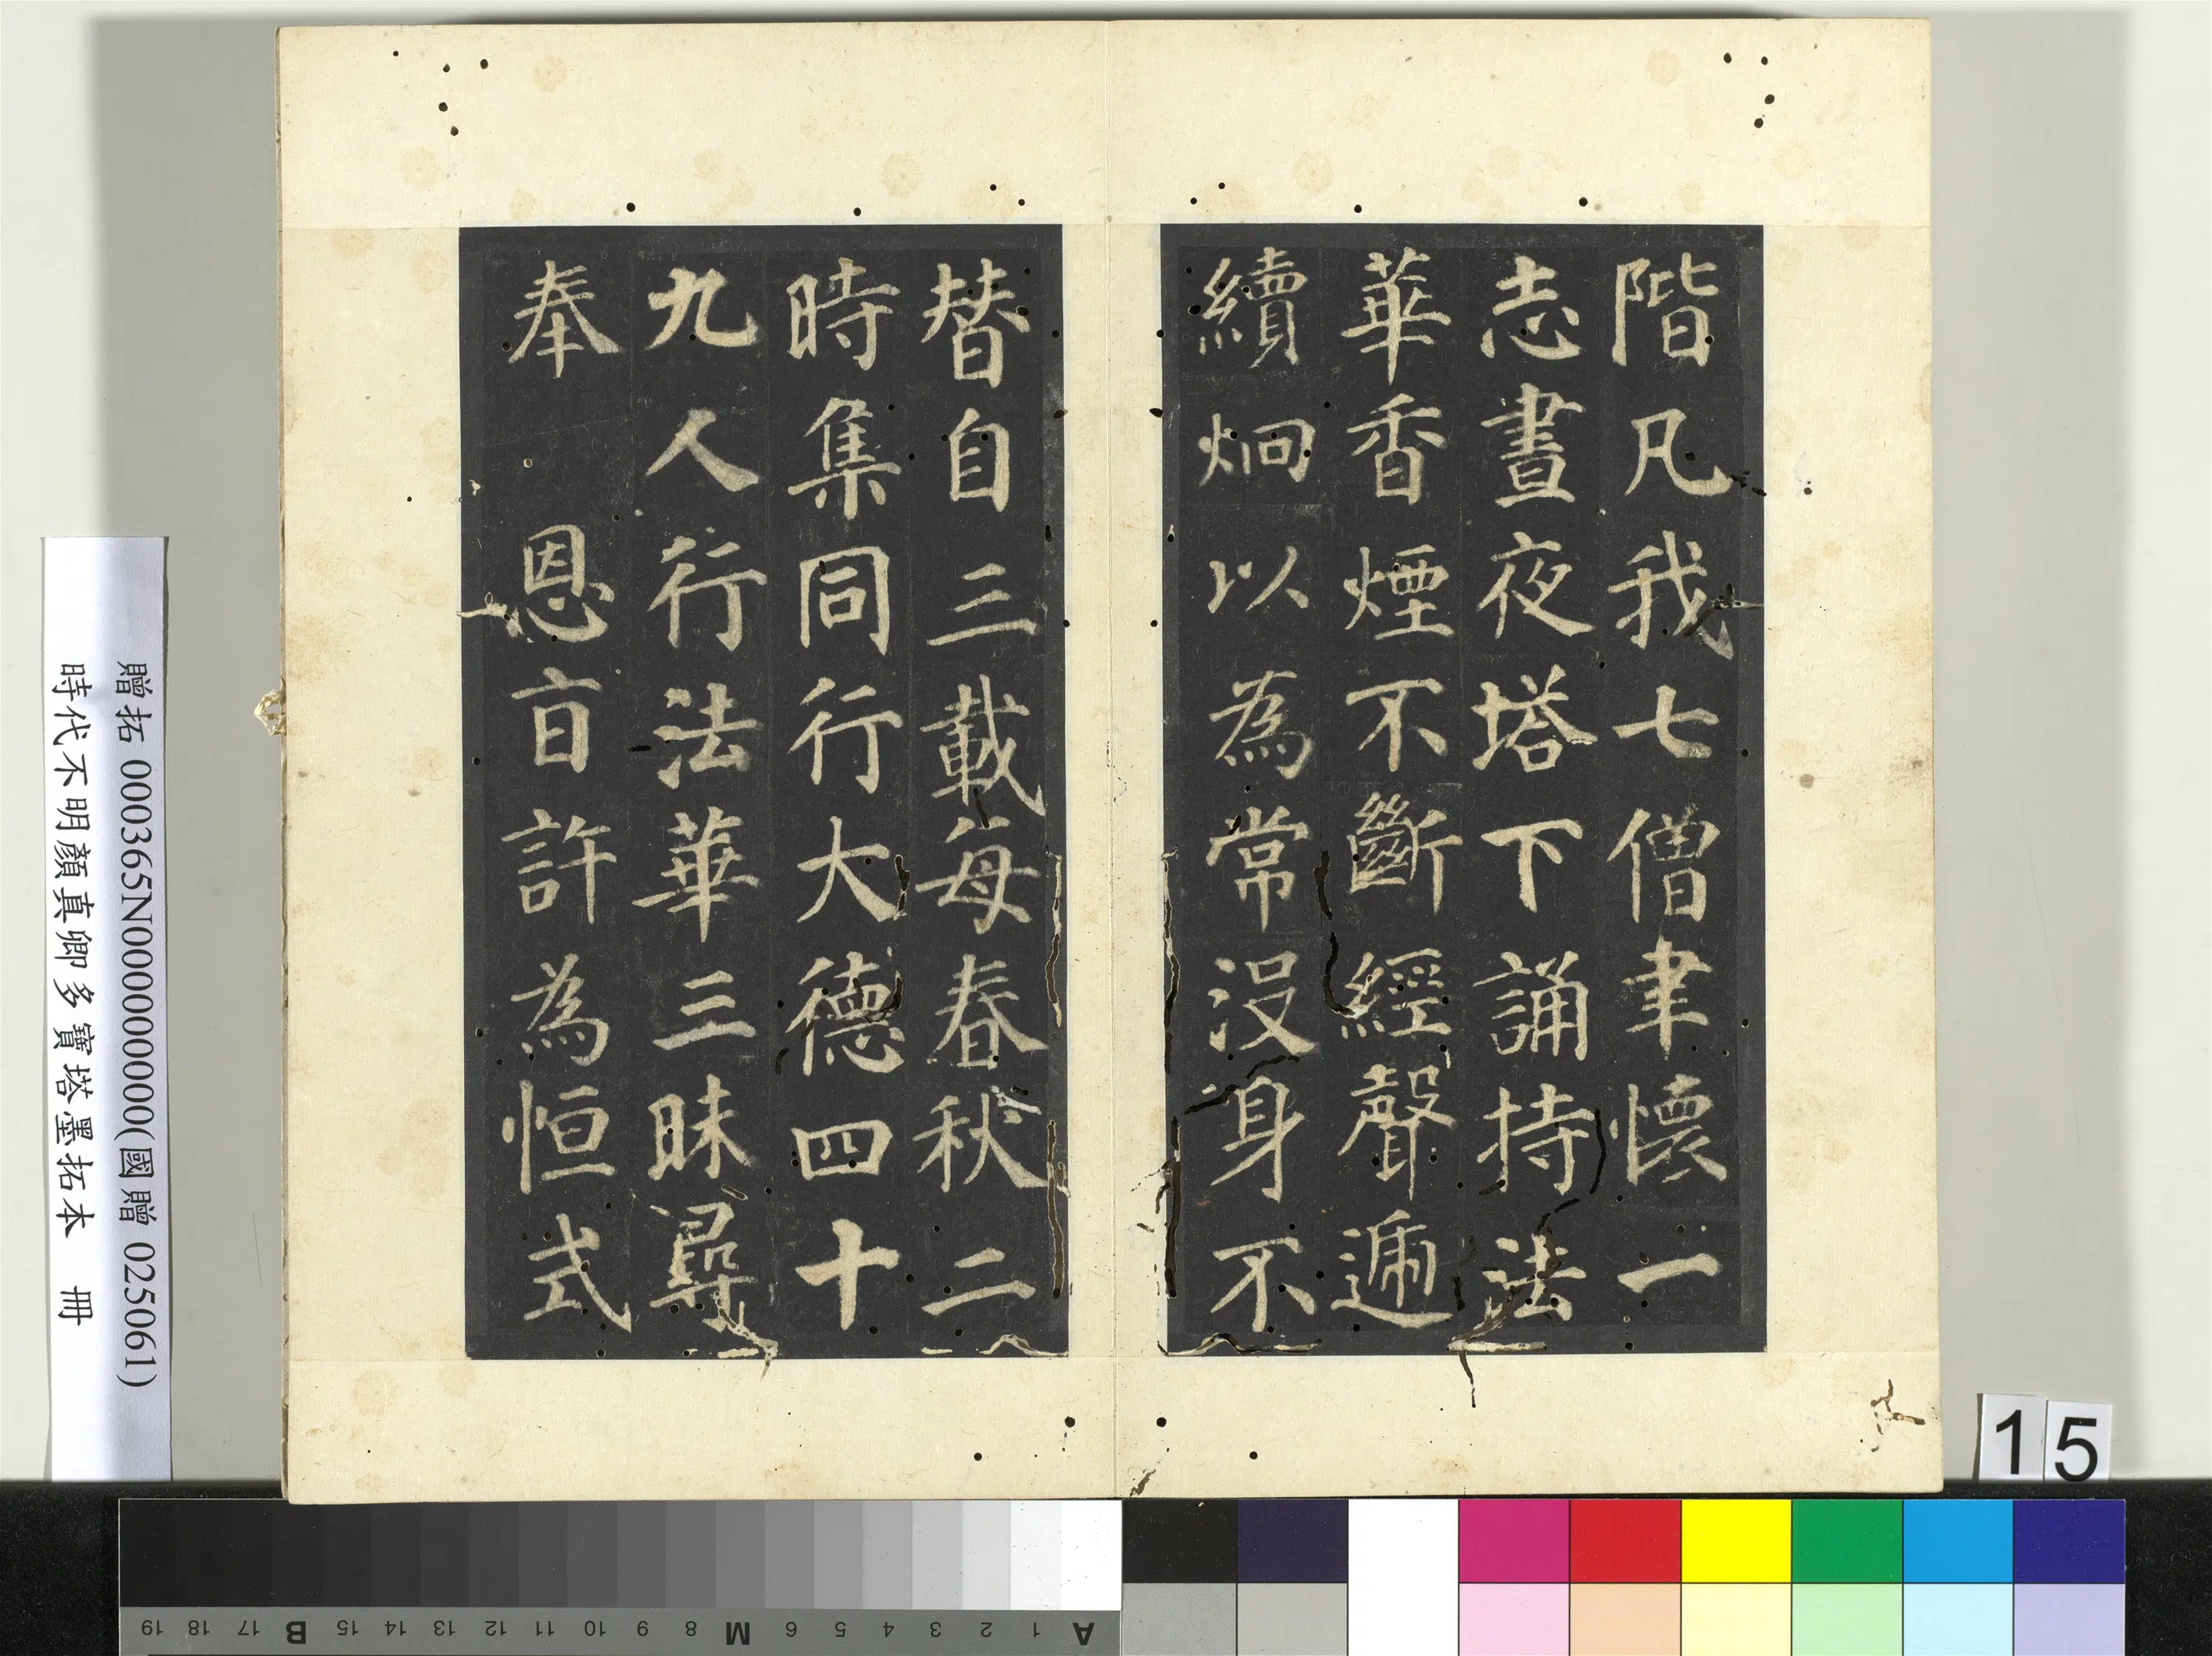 階凡我七僧聿懷一
志晝夜塔下誦持法
華香煙不斷經聲遞
續炯以為常沒身不
替自三載每春秋二
時集同行大德四十
九人行法華三昧尋
奉 恩旨許為恒式
贈拓 000365N000000000(國贈 025061)
時代不明顏真卿多寶塔墨拓本 冊
15
19 18 17 B 15 14 13 12 11 10 9 8 M 6 5 4 3 2 1 A